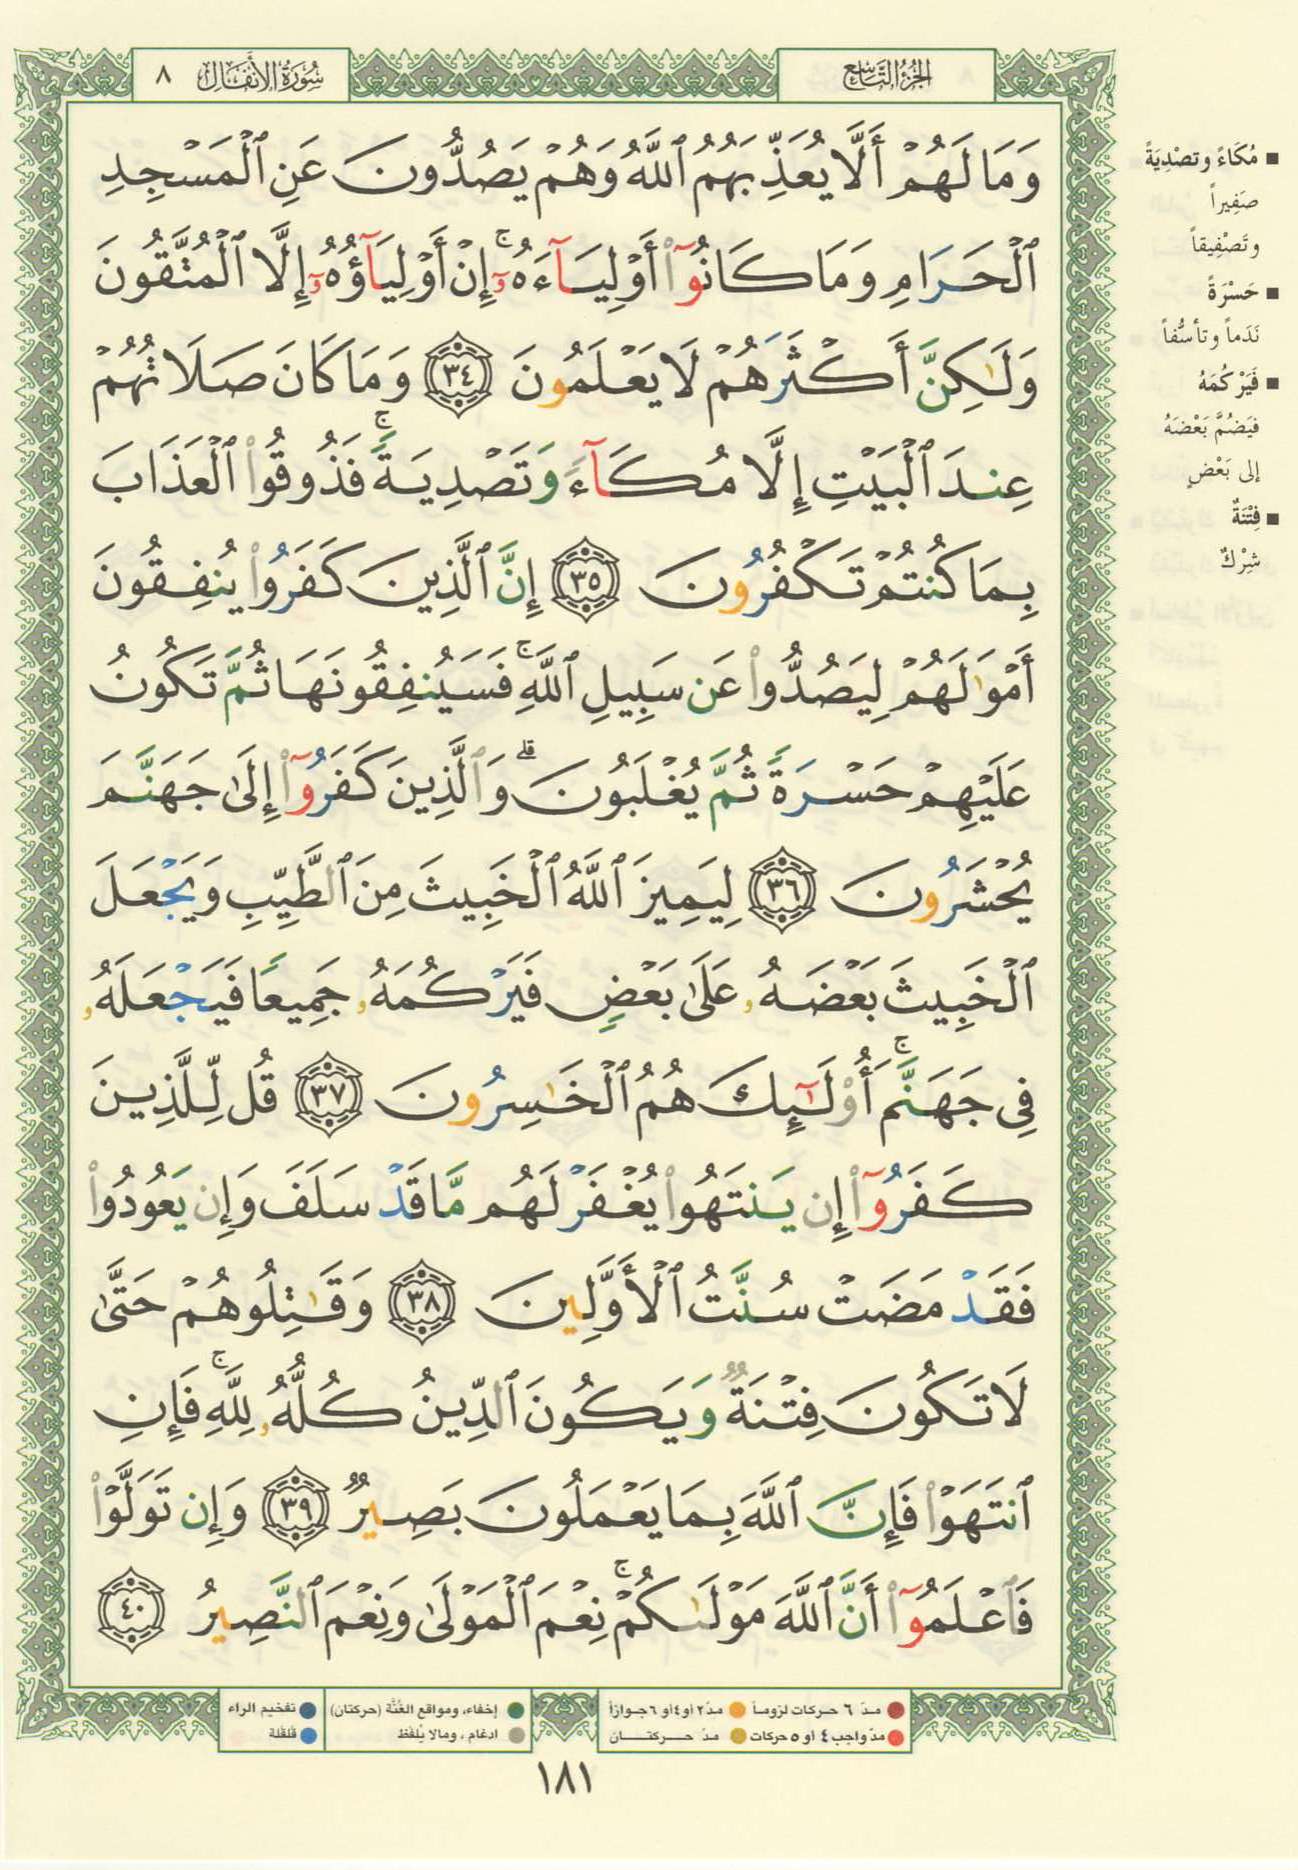 الجزء التاسع
سورة الأنفال ٨
وَمَا لَهُمْ أَلَّا يُعَذِّبَهُمُ ٱللَّهُ وَهُمْ يَصُدُّونَ عَنِ ٱلْمَسْجِدِ
ٱلْحَرَامِ وَمَا كَانُوٓا۟ أَوْلِيَآءَهُۥٓ ۚ إِنْ أَوْلِيَآؤُهُۥٓ إِلَّا ٱلْمُتَّقُونَ
وَلَٰكِنَّ أَكْثَرَهُمْ لَا يَعْلَمُونَ ٣٤ وَمَا كَانَ صَلَاتُهُمْ
عِندَ ٱلْبَيْتِ إِلَّا مُكَآءً وَتَصْدِيَةً ۚ فَذُوقُوا۟ ٱلْعَذَابَ
بِمَا كُنتُمْ تَكْفُرُونَ ٣٥ إِنَّ ٱلَّذِينَ كَفَرُوا۟ يُنفِقُونَ
أَمْوَٰلَهُمْ لِيَصُدُّوا۟ عَن سَبِيلِ ٱللَّهِ ۚ فَسَيُنفِقُونَهَا ثُمَّ تَكُونُ
عَلَيْهِمْ حَسْرَةً ثُمَّ يُغْلَبُونَ ۗ وَٱلَّذِينَ كَفَرُوٓا۟ إِلَىٰ جَهَنَّمَ
يُحْشَرُونَ ٣٦ لِيَمِيزَ ٱللَّهُ ٱلْخَبِيثَ مِنَ ٱلطَّيِّبِ وَيَجْعَلَ
ٱلْخَبِيثَ بَعْضَهُۥ عَلَىٰ بَعْضٍ فَيَرْكُمَهُۥ جَمِيعًا فَيَجْعَلَهُۥ
فِى جَهَنَّمَ ۚ أُو۟لَٰٓئِكَ هُمُ ٱلْخَٰسِرُونَ ٣٧ قُل لِّلَّذِينَ
كَفَرُوٓا۟ إِن يَنتَهُوا۟ يُغْفَرْ لَهُم مَّا قَدْ سَلَفَ وَإِن يَعُودُوا۟
فَقَدْ مَضَتْ سُنَّتُ ٱلْأَوَّلِينَ ٣٨ وَقَٰتِلُوهُمْ حَتَّىٰ
لَا تَكُونَ فِتْنَةٌ وَيَكُونَ ٱلدِّينُ كُلُّهُۥ لِلَّهِ ۚ فَإِنِ
ٱنتَهَوْا۟ فَإِنَّ ٱللَّهَ بِمَا يَعْمَلُونَ بَصِيرٌ ٣٩ وَإِن تَوَلَّوْا۟
فَٱعْلَمُوٓا۟ أَنَّ ٱللَّهَ مَوْلَىٰكُمْ ۚ نِعْمَ ٱلْمَوْلَىٰ وَنِعْمَ ٱلنَّصِيرُ ٤٠
■ مُكَاءً وتصْدِيَةً
صَفِيراً
وتَصْفِيقاً
■ حَسْرَةً
نَدَماً وتأسُّفاً
■ فَيَرْكُمَهُ
فيَضُمَّ بَعْضَهُ
إلى بَعْضٍ
■ فِتْنَةٌ
شِرْكٌ
مدّ ٦ حركات لزوماً مدّ ٢ أو ٤ أو ٦ جوازاً
مدّ واجب ٤ أو ٥ حركات مدّ حركتان
إخفاء، ومواقع الغُنَّة (حركتان) تفخيم الراء
ادغام، ومالا يُلفَظ قلقلة
١٨١